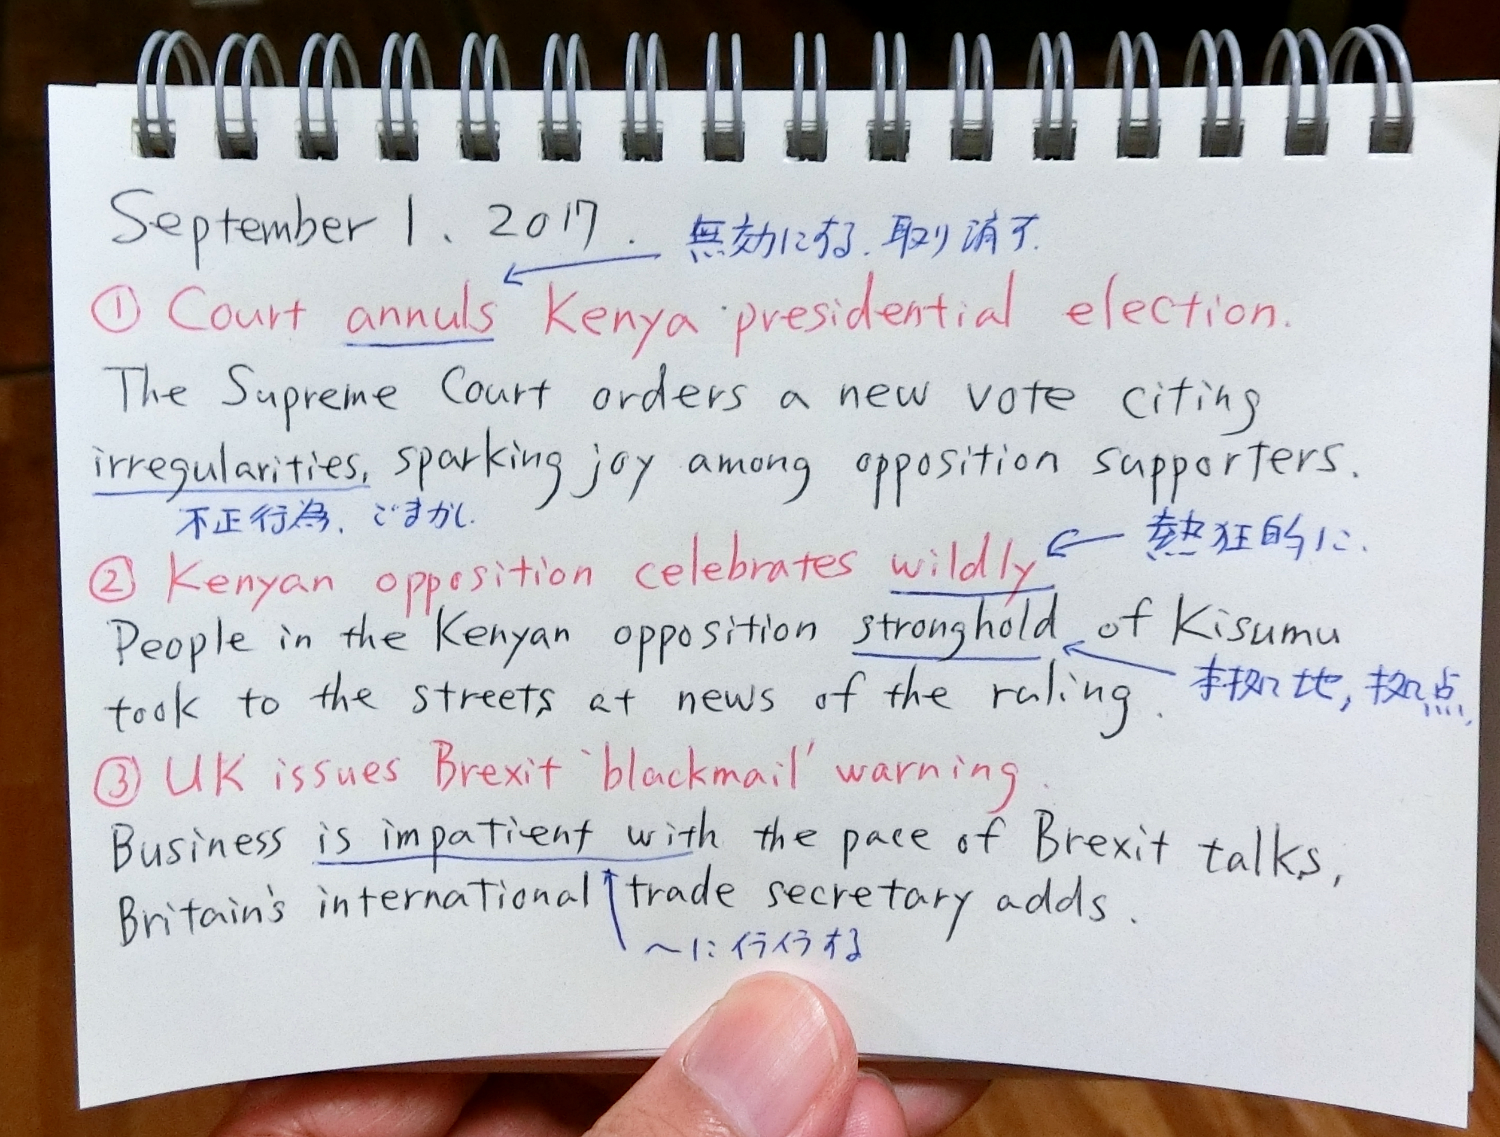 September 1. 2017.
無効にする.取り消す.
① Court annuls Kenya presidential election.
The Supreme Court orders a new vote citing
irregularities, sparking joy among opposition supporters.
不正行為、ごまかし
熱狂的に.
② Kenyan opposition celebrates wildly
People in the Kenyan opposition stronghold of Kisumu
本拠地,拠点.
took to the streets at news of the ruling.
③ UK issues Brexit 'blackmail' warning.
Business is impatient with the pace of Brexit talks,
Britain's international trade secretary adds.
~にイライラする